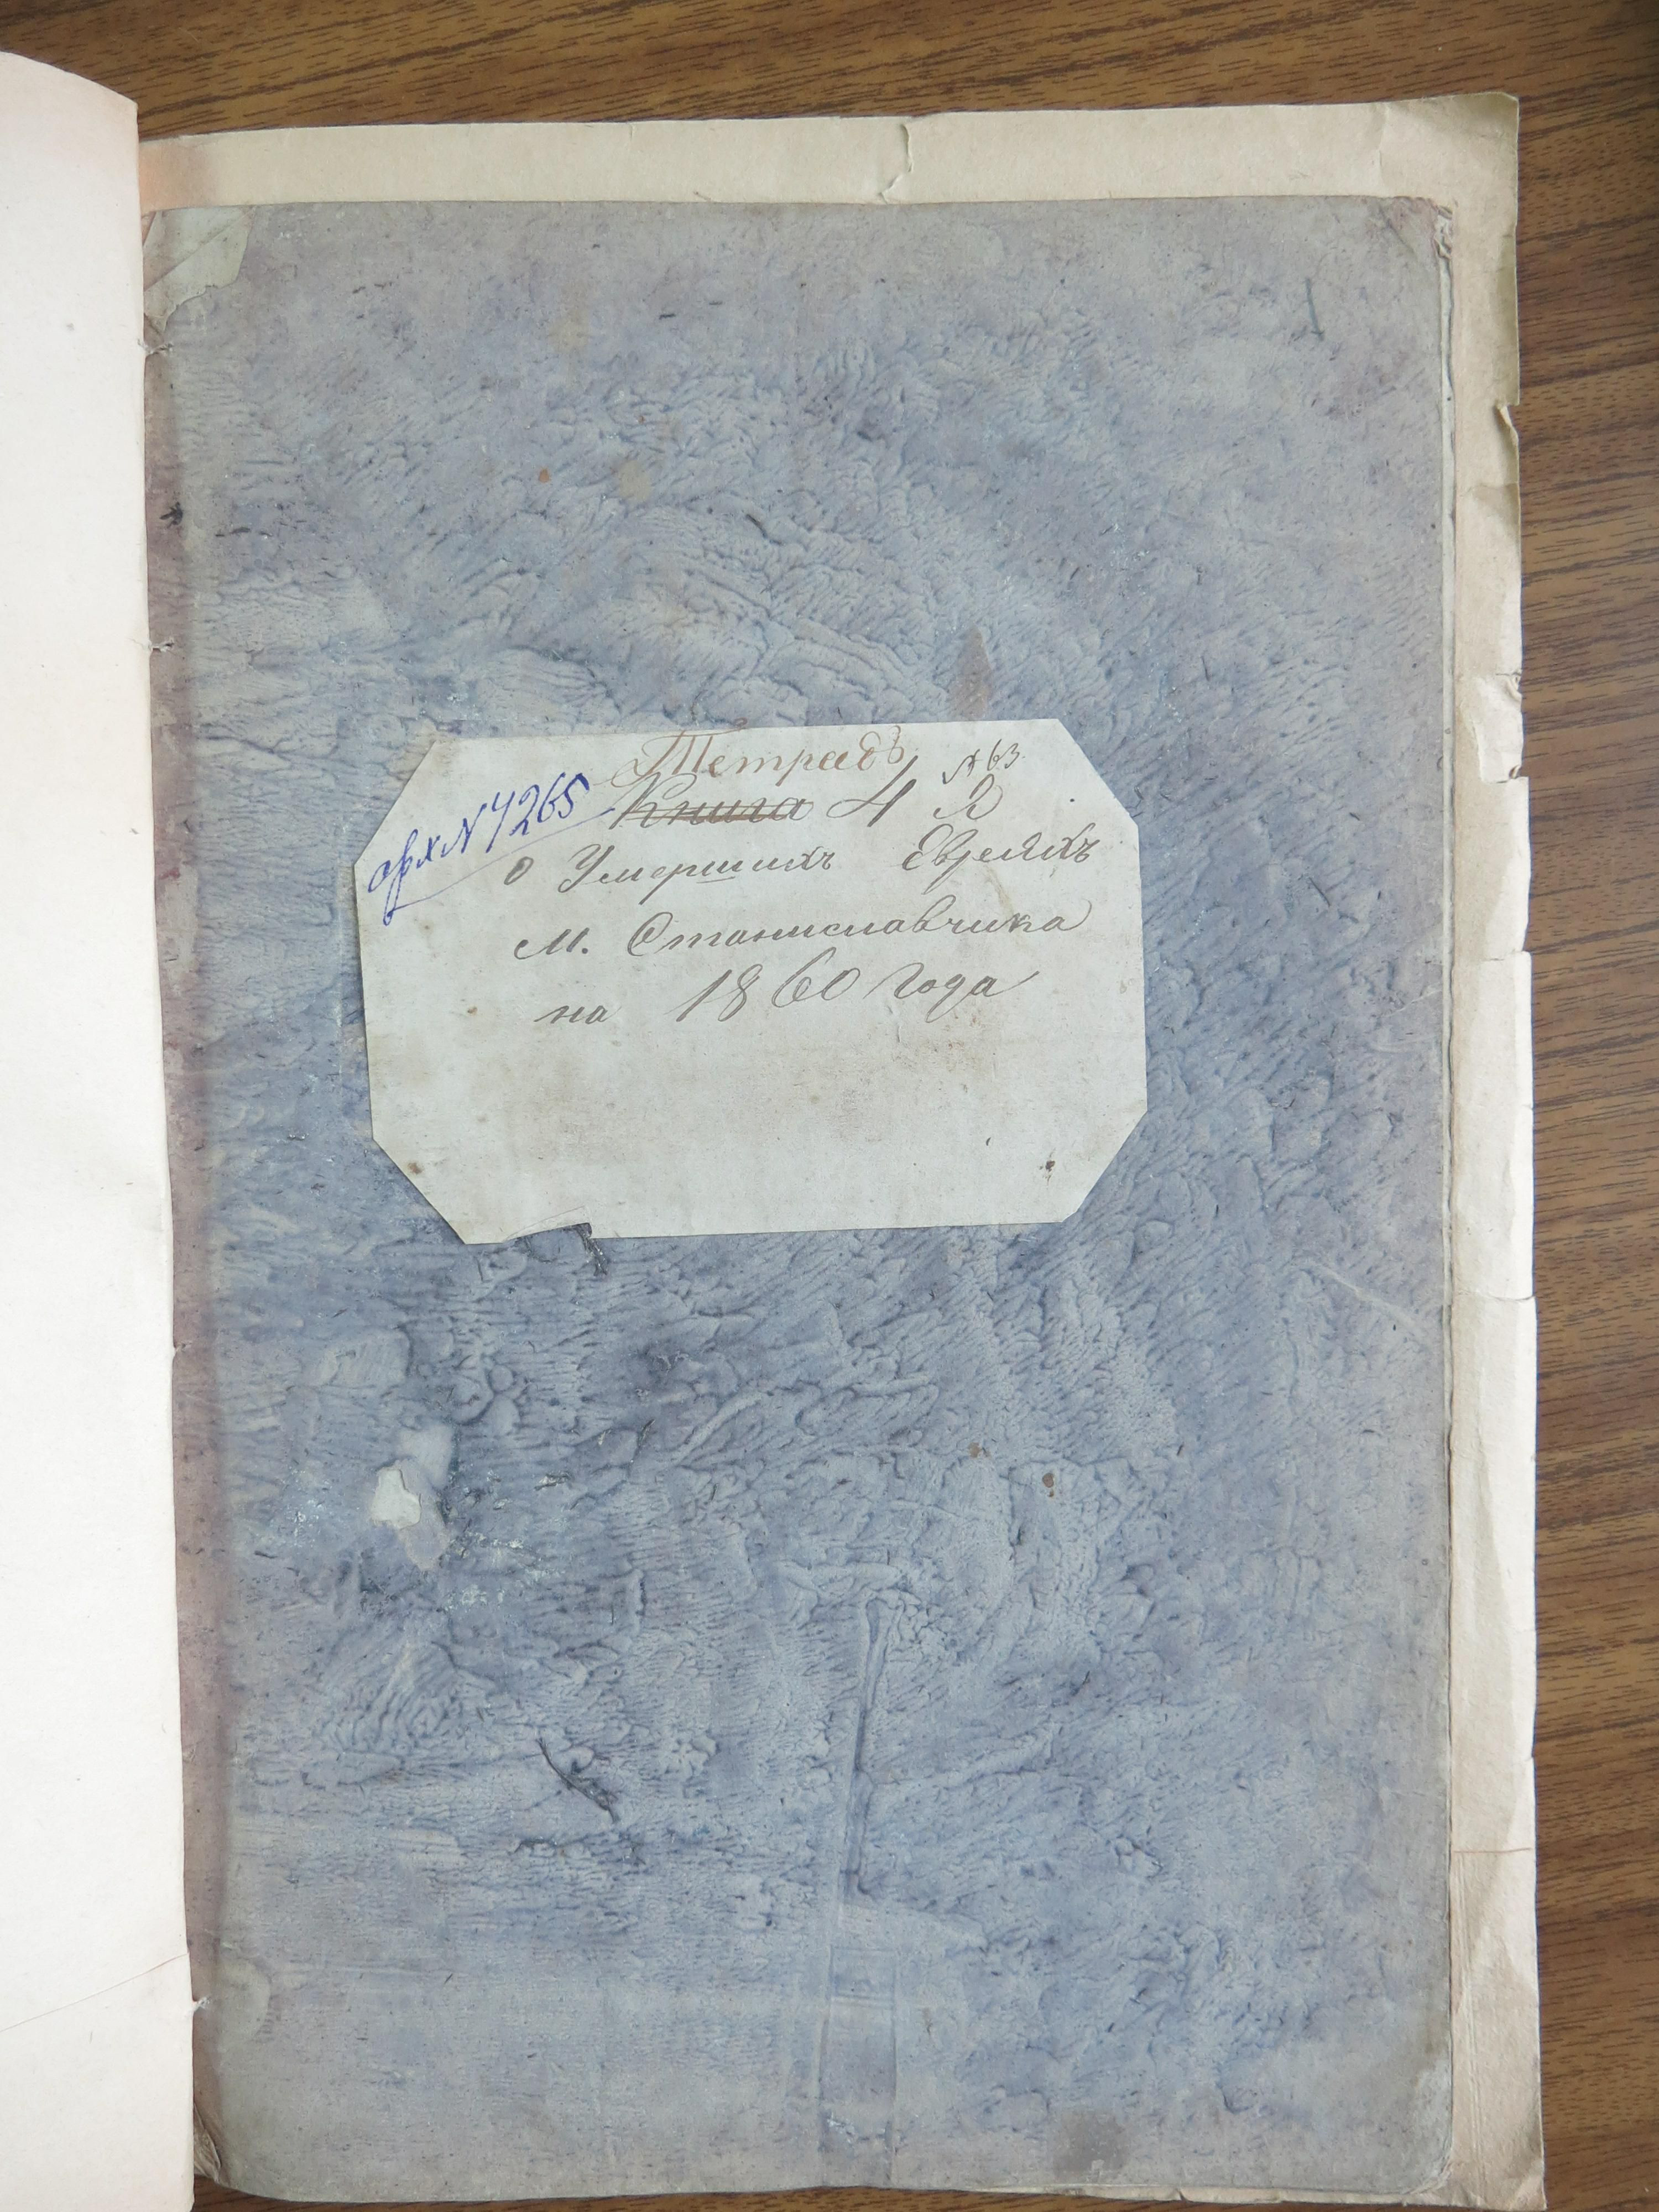 1
Тетрадь
№ 63.
арх № 7265
Книга 4 Я
о Умершихъ Евреяхъ
м. Станиславчика
на 1860 года